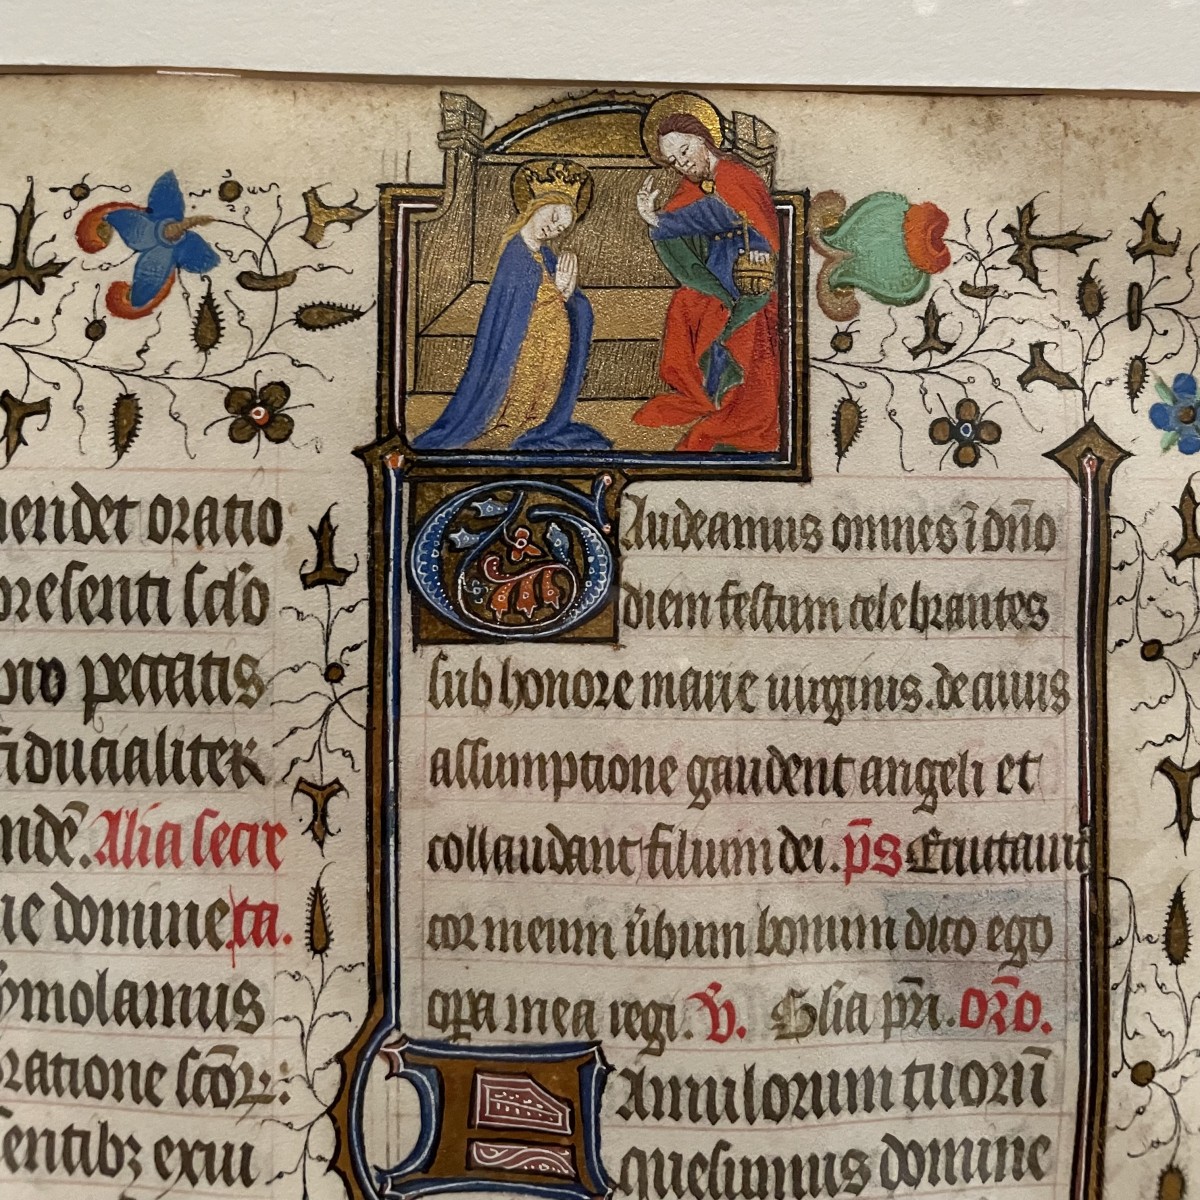 endet oratio
presenti scīō
pro peccatis
fiducialiter
ndē. Alia secre
ue domine ta.
ymolamus
oratione scōr:
sentibz exui
Gaudeamus omnes ī dño
diem festum celebrantes
sub honore marie uirginis. de cuius
assumptione gaudent angeli et
collaudant filium dei. p̄s Eructauit
cor meum ūbum bonum dico ego
opa mea regi. V̄. Glia pr̄i. Orō.
Famulorum tuorū
quesumus domine